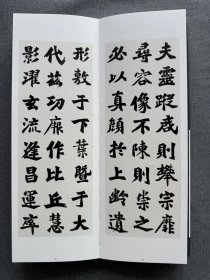 夫靈蹤則攀宗靡
尋容像不陳則崇之
必以真顏於上齡遺
形敷于下葉暨于大
代茲功厥作比丘慧
影濯玄流逢昌運率